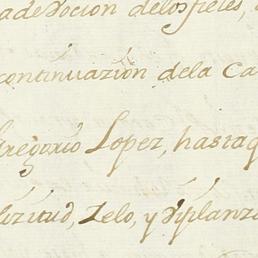 adeVocion delos fieles,
continuazion dela Ca
Gregorio Lopez, hasta q
Zelo, y Vijilanz